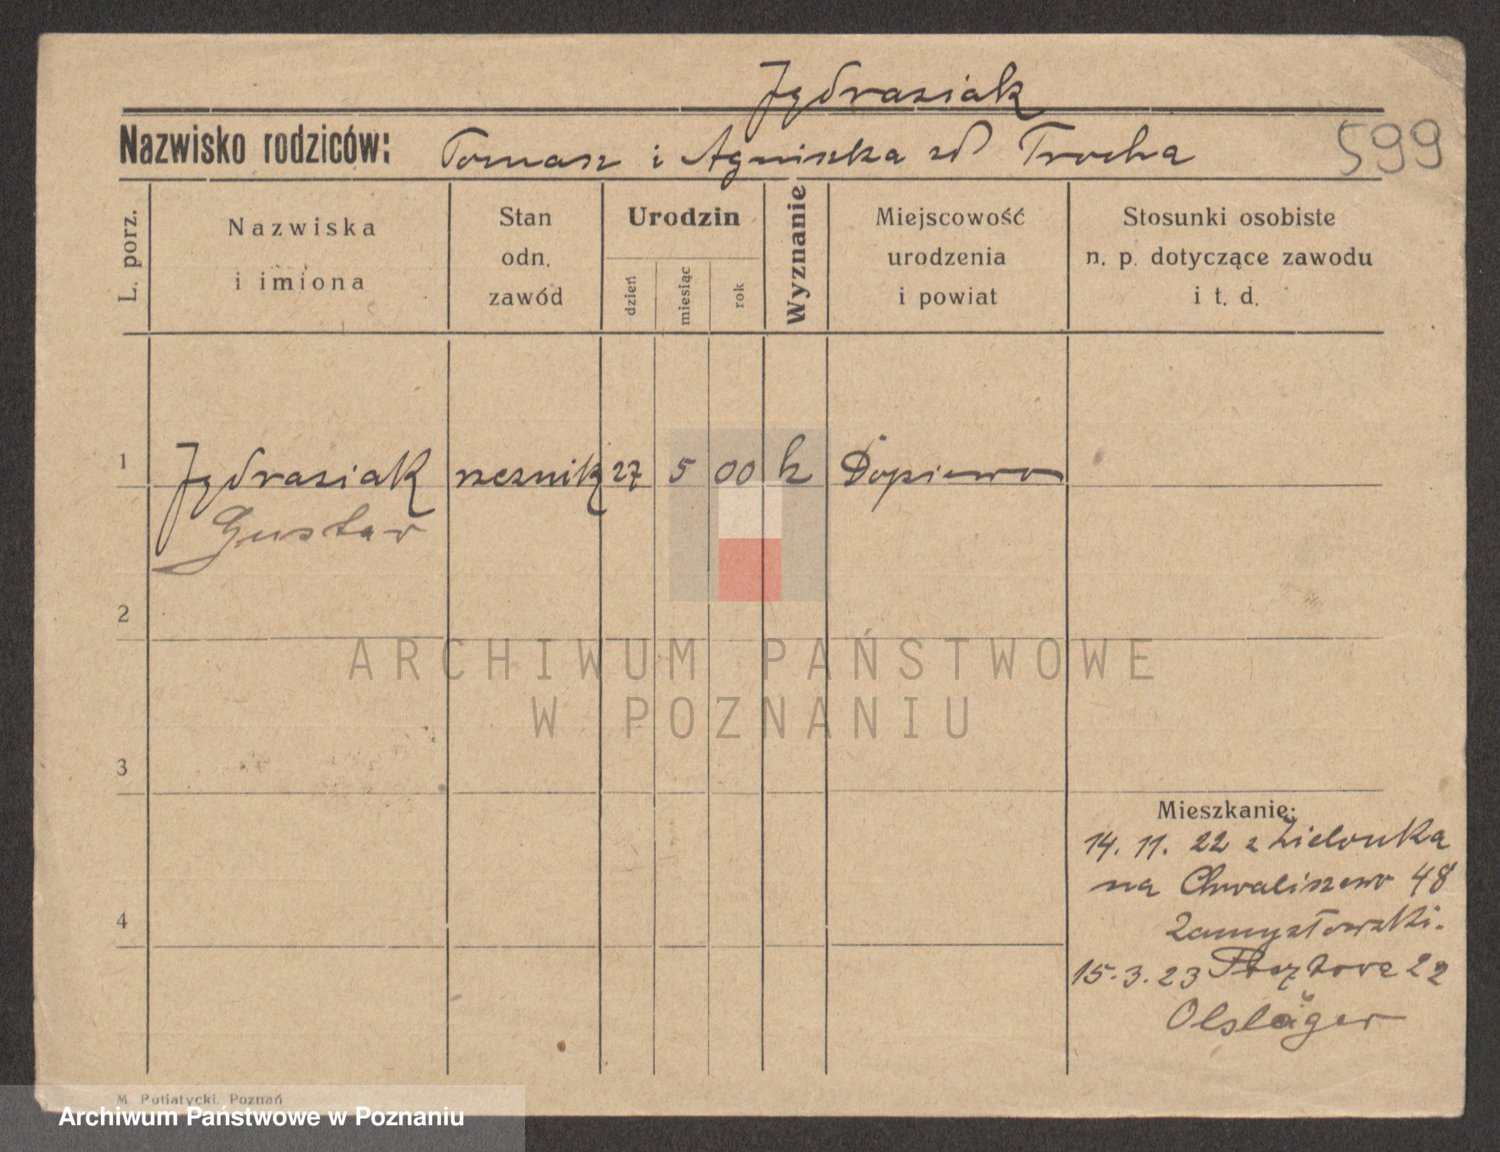 Jędrasiak
Nazwisko rodziców: Tomasz i Agniszka zd Trocha
599
L. porz.
Nazwiska
i imiona
Stan
odn.
zawód
Urodzin
dzień
miesiąc
rok
Wyznanie
Miejscowość
urodzenia
i powiat
Stosunki osobiste
n. p. dotyczące zawodu
i t. d.
1 Jędrasiak rzeznik 27 5 00 k Dopiewo
Gustav
2
ARCHIWUM PAŃSTWOWE
W POZNANIU
3
Mieszkanie:
14. 11. 22 z Zielonka
na Chwaliszewo 48
4
Zamysłowski.
15. 3. 23 22
Olsläger
M. Putiatycki, Poznań
Archiwum Państwowe w Poznaniu